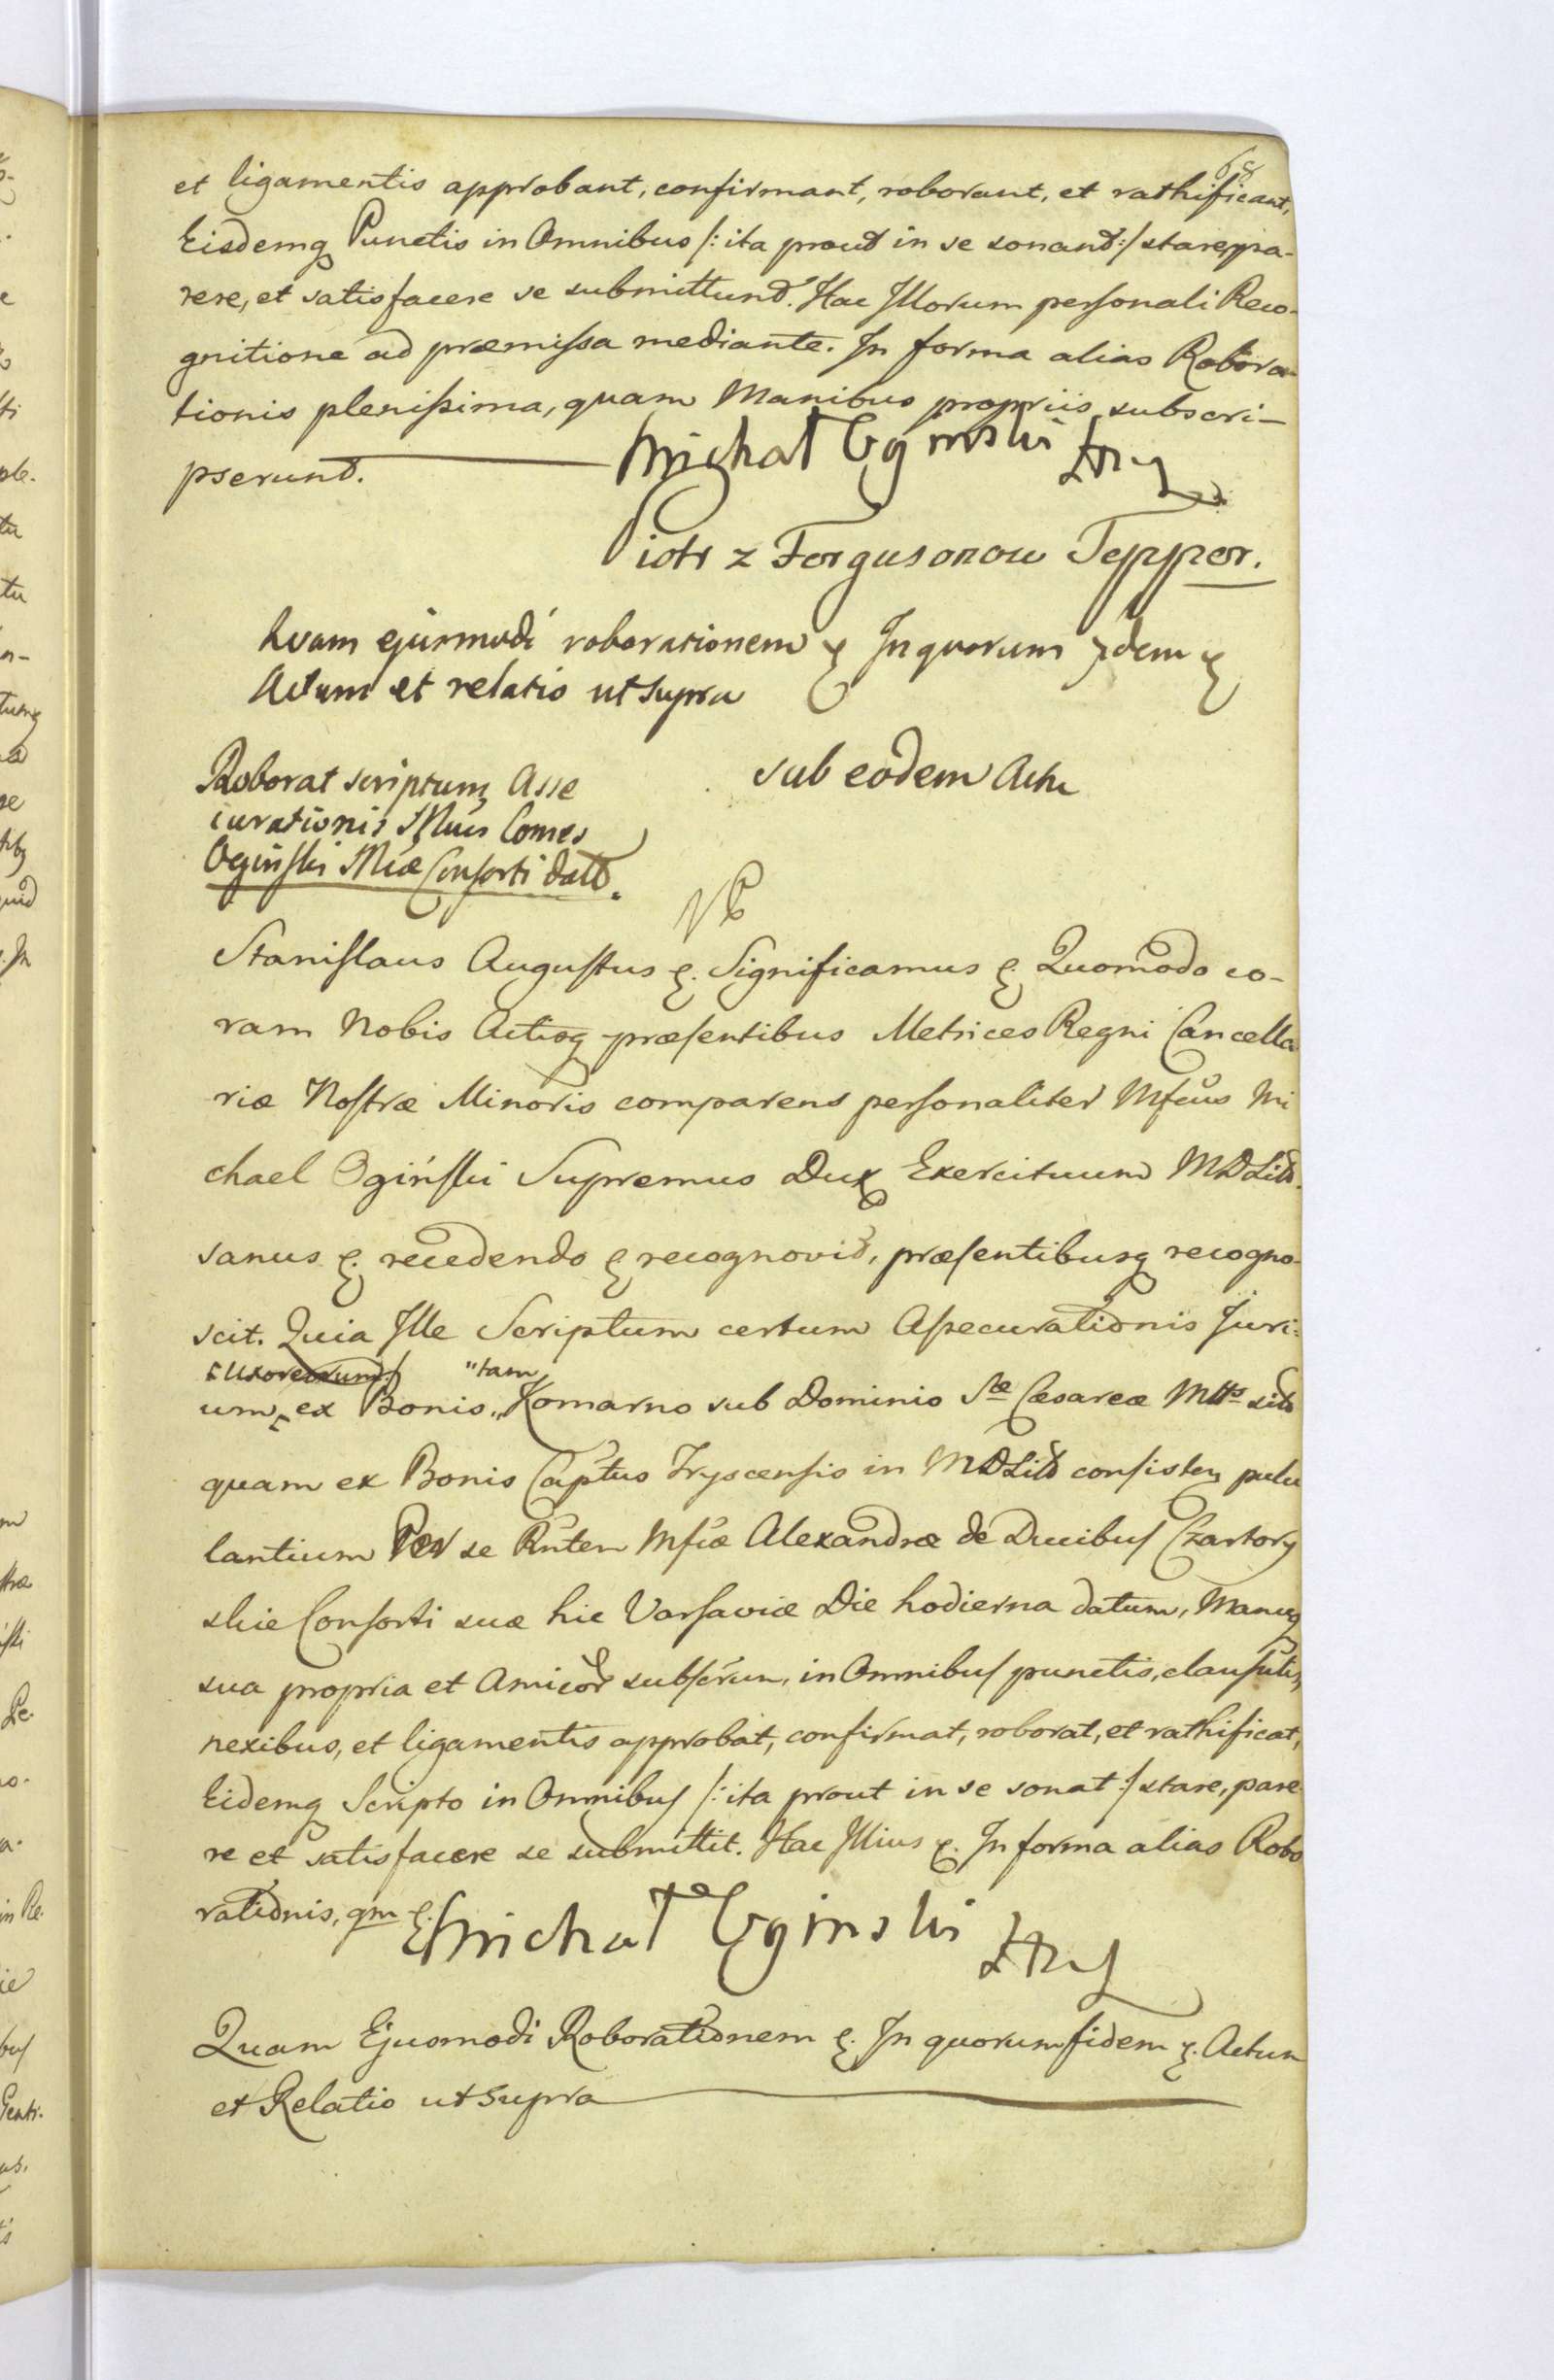 68
et ligamentis approbant, confirmant, roborant, et rathificant,
Eisdemq Punctis in Omnibus /: ita prout in se sonant :/ stare, pa-
rere, et satisfacere se submittunt. Hac Illorum personali Reco-
gnitione ad præmissa mediante. In forma alias Robora-
tionis plenissima, quam Manibus propriis subscri-
pserunt. Michał Ogiński HWL
Piotr z Fergusonow Tepper.
Quam ejusmodi roborationem &c In quorum fidem &c
Actum et relatio ut supra
Roborat scriptum Asse
curationis Mcus Comes
Ogiński Mcæ Consorti datt.
sub eodem Actu
NB
Stanislaus Augustus &c. Significamus &c. Quomodo co-
ram Nobis Actisq præsentibus Metrices Regni Cancella
riæ Nostræ Minoris comparens personaliter Mfcus Mi
chael Ogiński Supremus Dux Exercituum MDLitt.
sanus &c. recedendo &c recognovit, præsentibusq recogno-
scit. Quia Ille Scriptum certum Assecurationis Juri-
um, ex Bonis "tam Komarno sub Dominio Sæ Cæsareæ Mtts sitt
quam ex Bonis Capttus Tryscensis in MDLitt consisten pulu
lantium Per se Rnten Mfcæ Alexandræ de Ducibus Czartory
skie Consorti suæ hic Varsaviæ Die hodierna datum, Manuq
sua propria et Amicor subscrum, in Omnibus punctis, clausulis,
nexibus, et ligamentis approbat, confirmat, roborat, et rathificat,
Eidemq Scripto in Omnibus /: ita prout in se sonat :/ stare, pare
re et satisfacere se submittit. Hac Illius &c. In forma alias Robo
rationis, qm &c. Michał Ogiński HWL
Quam Ejusmodi Roborationem &c. In quorum fidem &c. Actum
et Relatio ut supra